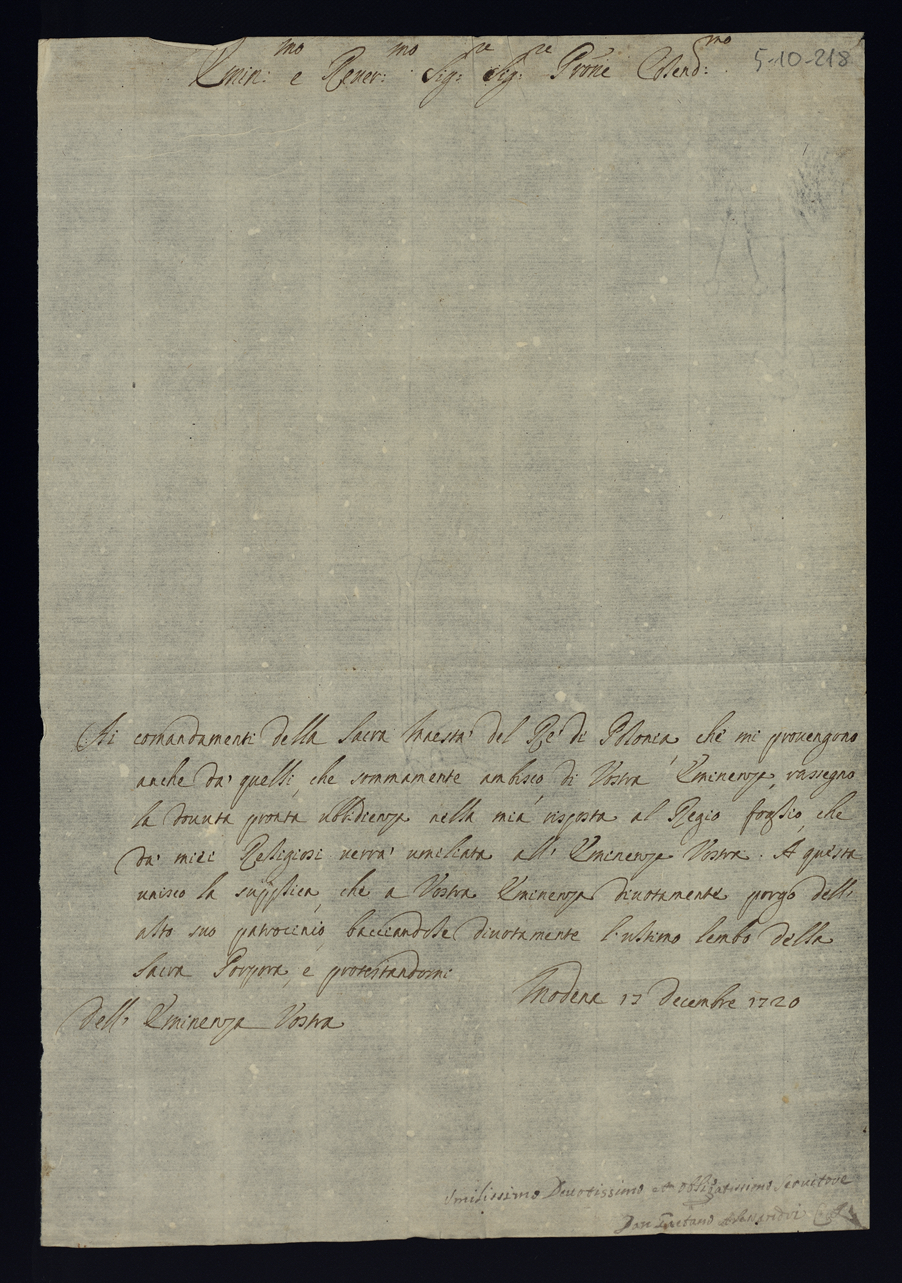 Emin:mo e Rever:mo Sig:re Sig:re Prone Colend:mo
5-10-218
Ai comandamenti della Sacra Maesta' del Rè di Polonia, che mi provengono
anche da' quelli, che sommamente ambisco, di Vostra Eminenza, rassegno
la dovuta pronta ubbidienza nella mia risposta al Regio foglio, che
da' miei Religiosi verra' umiliata all' Eminenza Vostra. A questa
unisco la supplica, che a Vostra Eminenza divotamente porgo dell'
alto suo patrocinio, bacciandole divotamente l'ultimo lembo della
Sacra Porpora, e protestandomi
Modena 17 Decembre 1720
Dell' Eminenza Vostra
Umilissimo Divotissimo et Obligatissimo Servitore
Don Gaetano